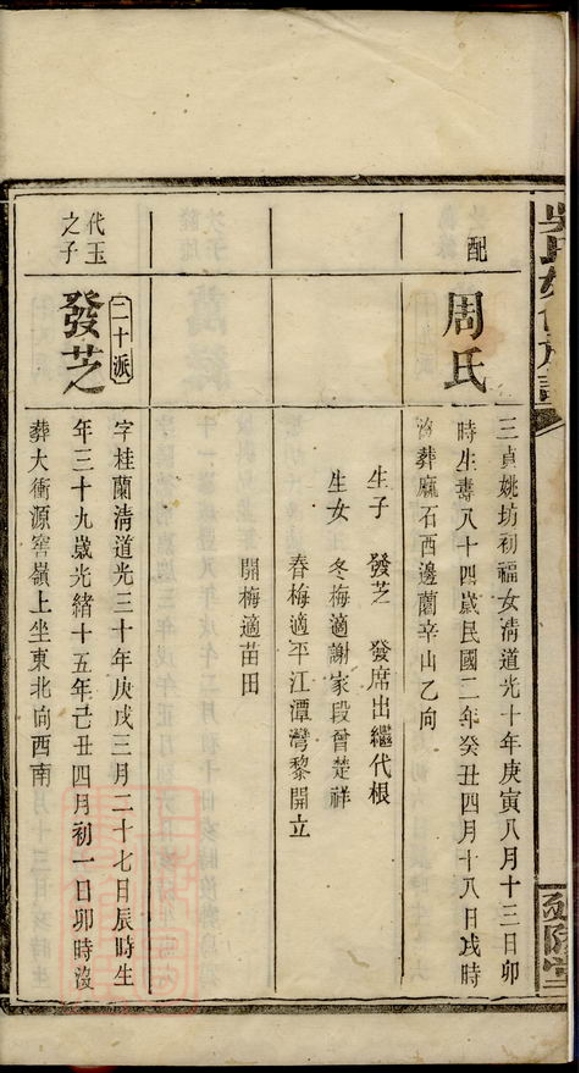 配
周氏
三貞姚坊初福女清道光十年庚寅八月十三日卯
時生壽八十四歲民國二年癸丑四月十八日戌時
歿葬麻石西邊蘭辛山乙向
生子 發芝 發席出繼代根
生女 冬梅適謝家段曾楚祥
春梅適平江潭灣黎開立
開梅適苗田
代玉
之子
二十派
發芝
字桂蘭清道光三十年庚戌三月二十七日辰時生
年三十九歲光緒十五年己丑四月初一日卯時沒
葬大衝源窖嶺上坐東北向西南